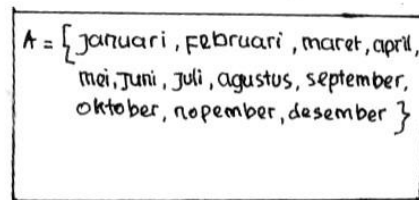 A = { januari, Februari, maret, april,
mei, juni, juli, agustus, september,
oktober, nopember, desember }